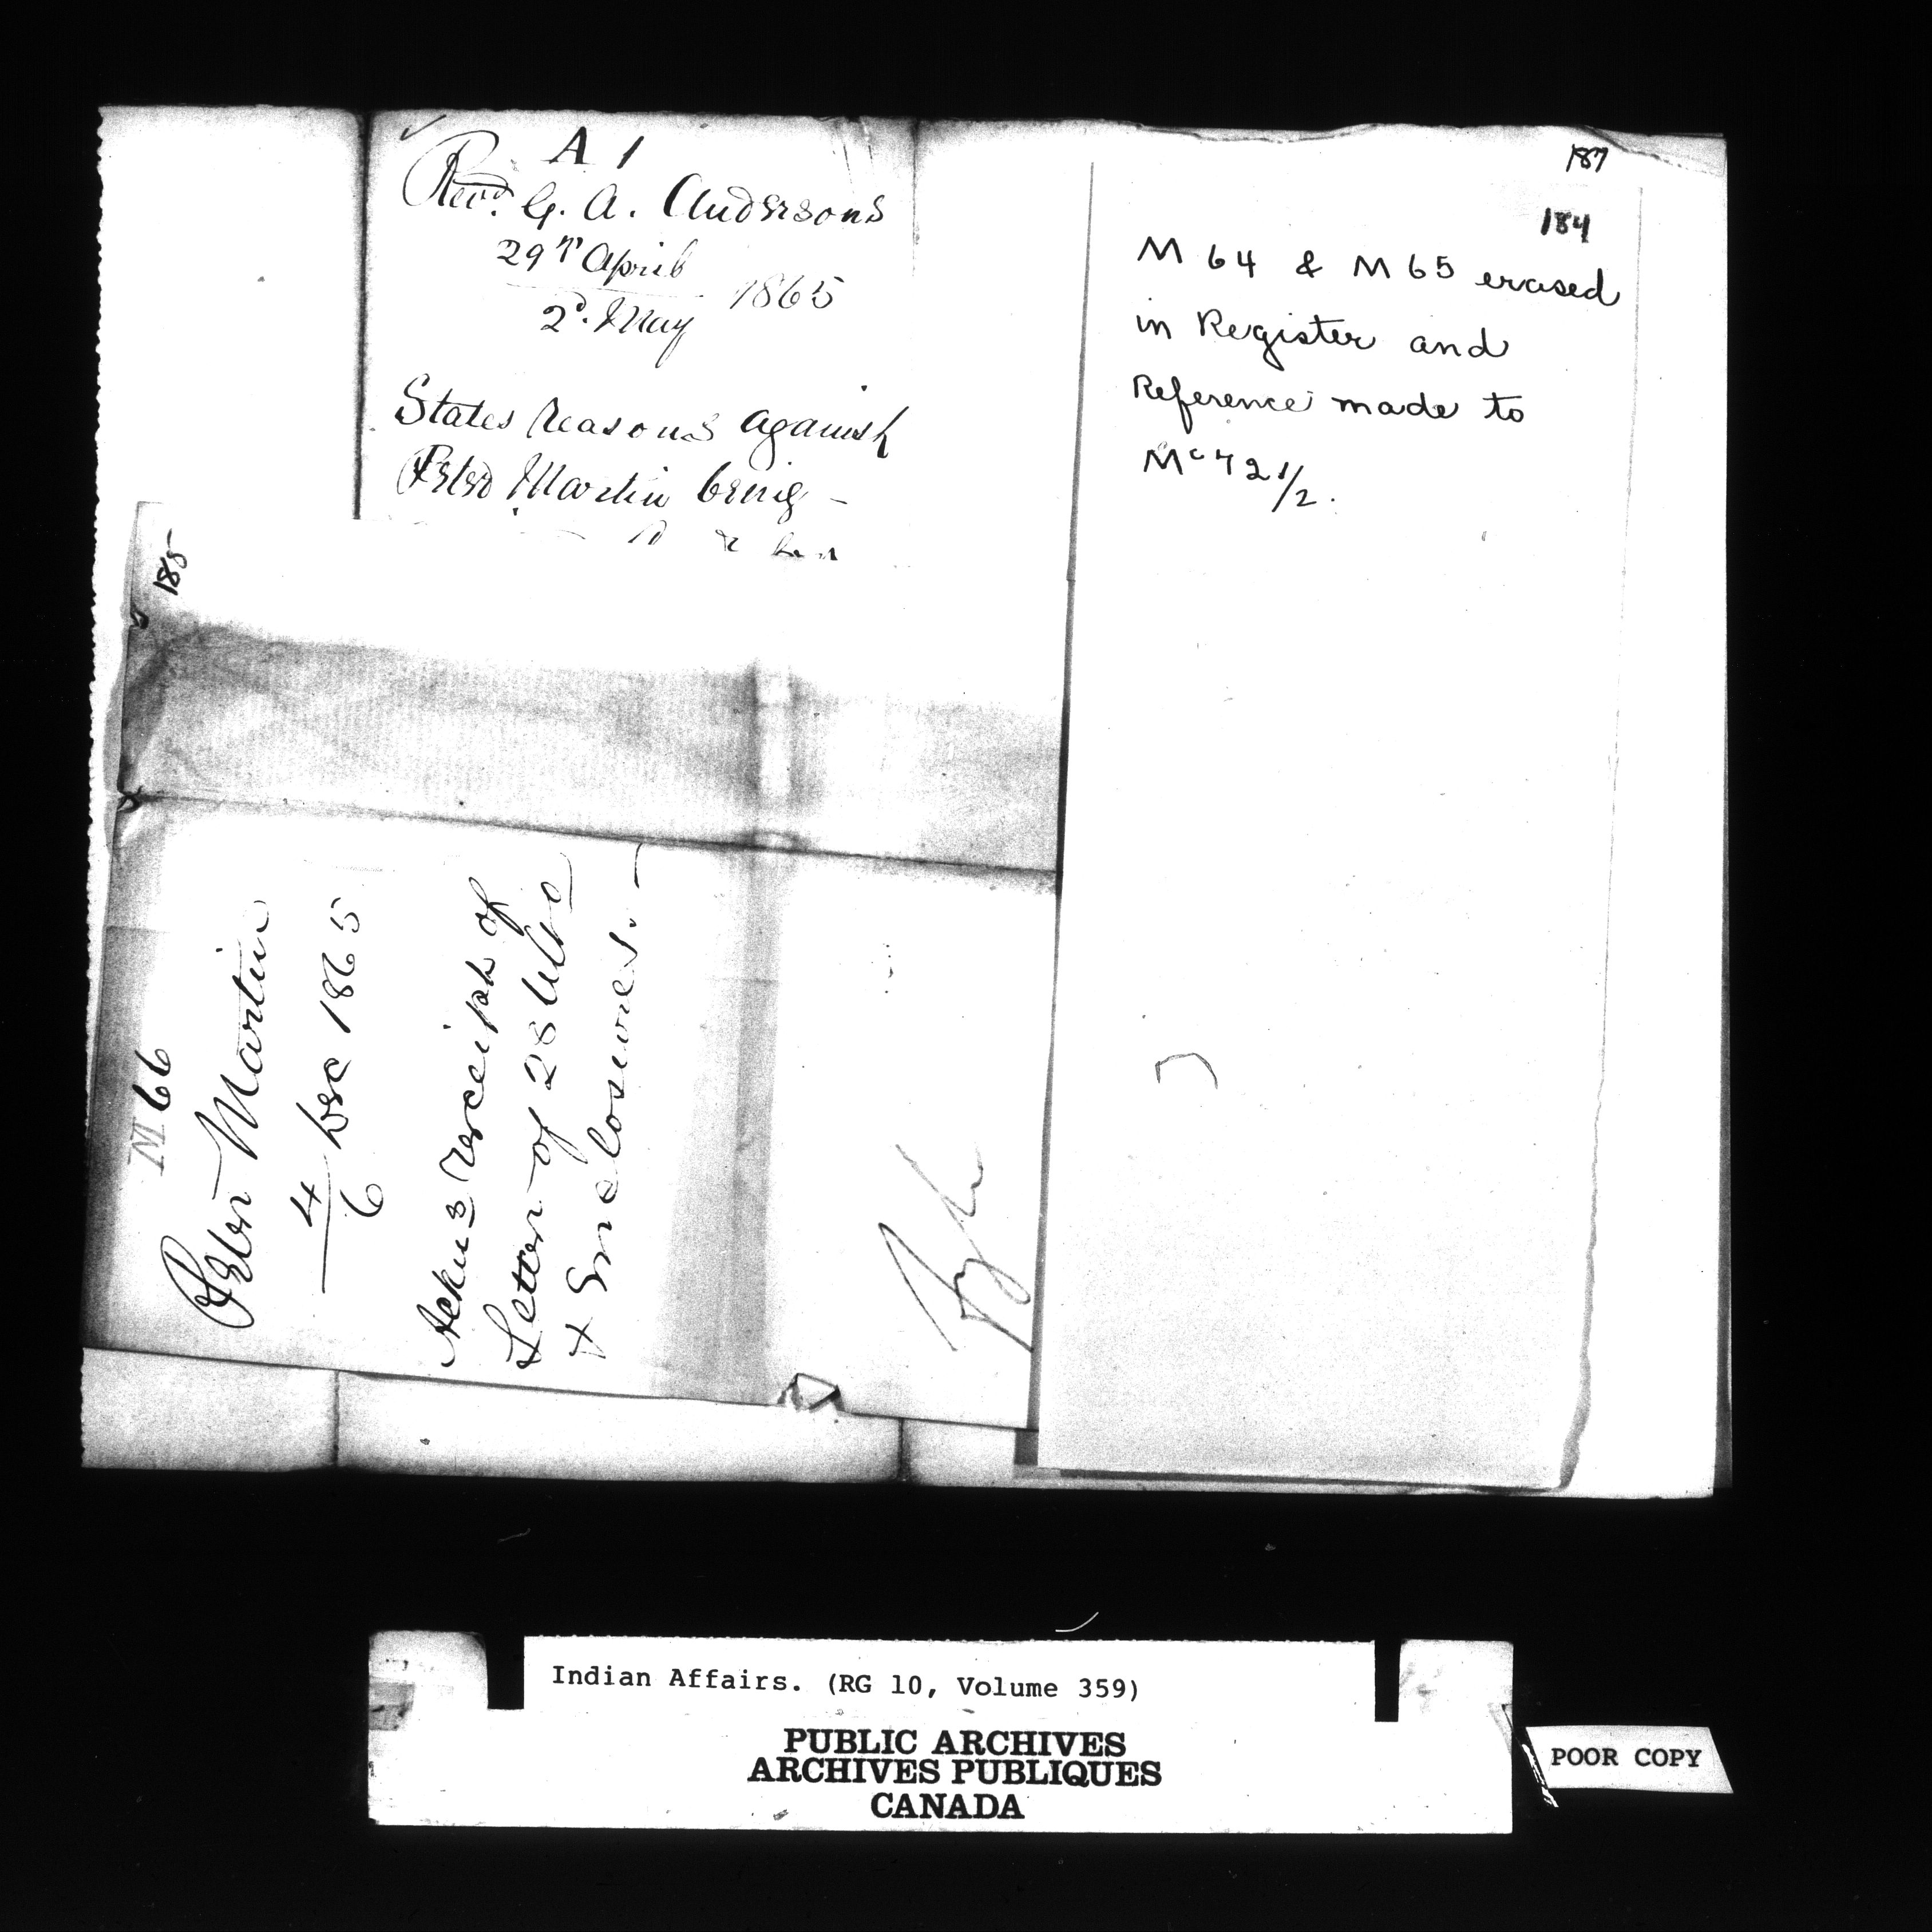 A 1
Revd. G. A. Andersons
29th April
1865
2d. May
States reasons against
Peter Martin being –
187
184
M 64 & M 65 erased
in Register and
Reference made to
Mc 72 1/2.
185
M 66
Peter Martin
4 Dec 1865
6
Ackng receipt of
Letter of 28 Ulto
& Enclosures. –
Indian Affairs. (RG 10, Volume 359)
PUBLIC ARCHIVES
ARCHIVES PUBLIQUES
CANADA
POOR COPY